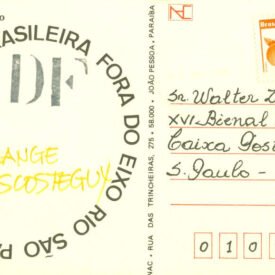 BRASILEIRA FORA DO EIXO RIO SÃO PA
DF
ANGE
SCOSTEGUY
NAC • RUA DAS TRINCHEIRAS, 275 • 58.000 • JOÃO PESSOA, PARAÍBA
Brasil
Sr. Walter Z
XVI Bienal
Caixa Post
S. Paulo -
0 1 0